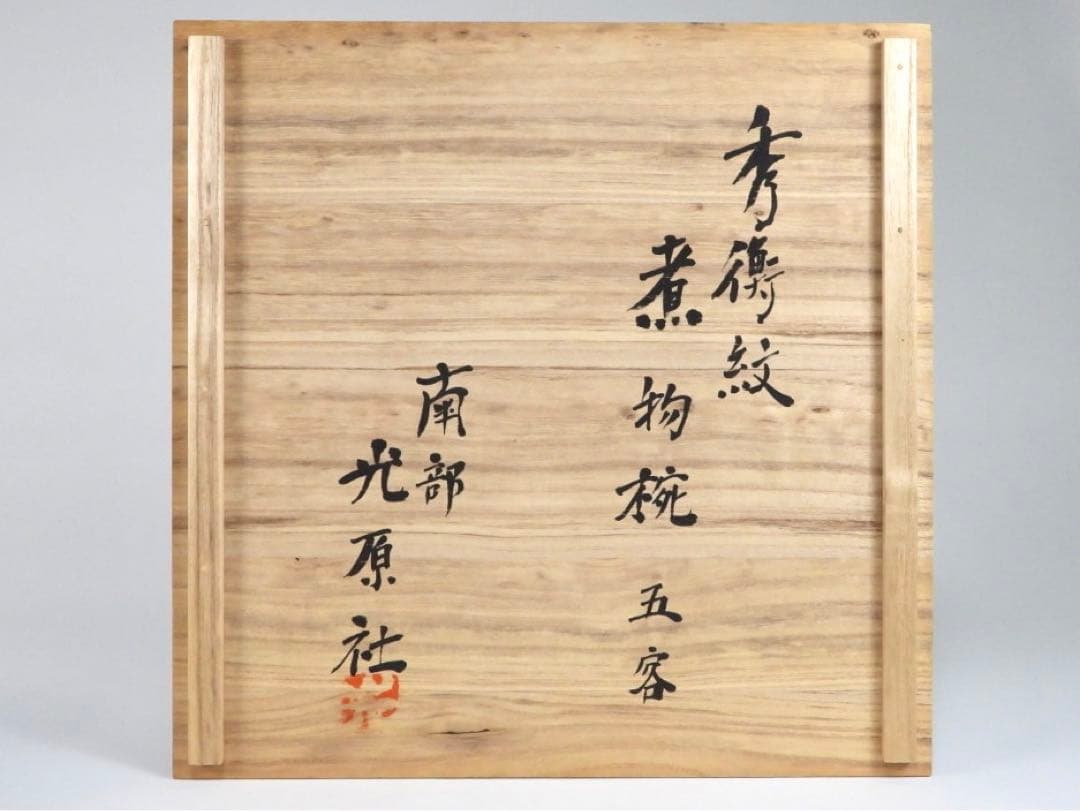 秀衡紋
煮物椀 五客
南部
光原社